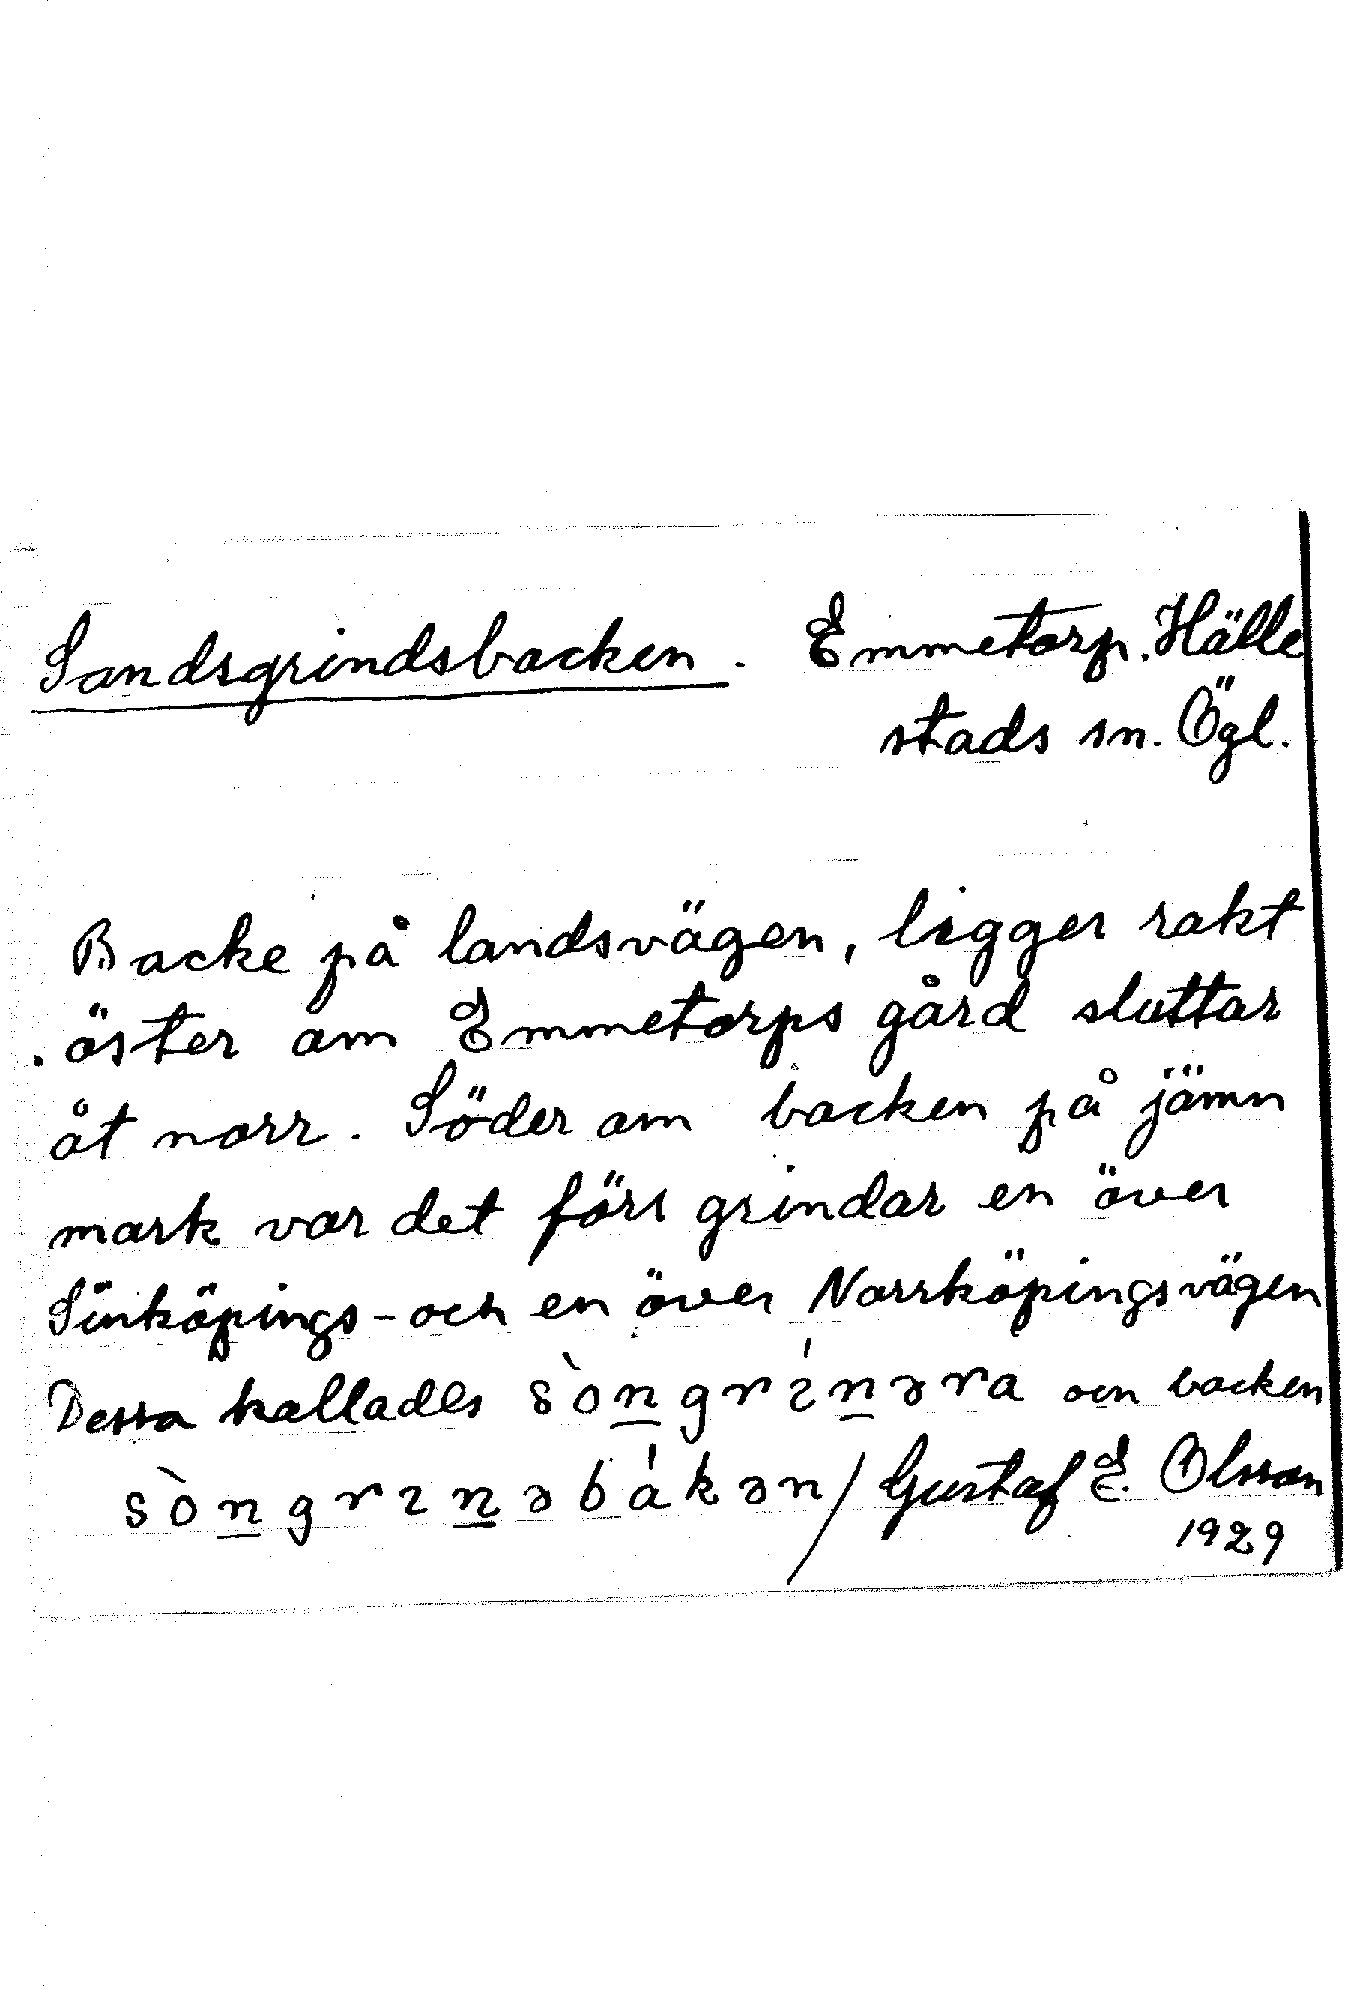 Sandsgrindsbacken. Emmetorp. Hälle
stads sn. Ögl.
Backe på landsvägen, ligger rakt
öster om Emmetorps gård sluttar
åt norr. Söder om backen på jämn
mark var det förr grindar en över
Linköpings- och en över Norrköpingsvägen
Dessa kallades sòngrínəra och backen
sòngrinəbákən / Gustaf E. Olsson
1929